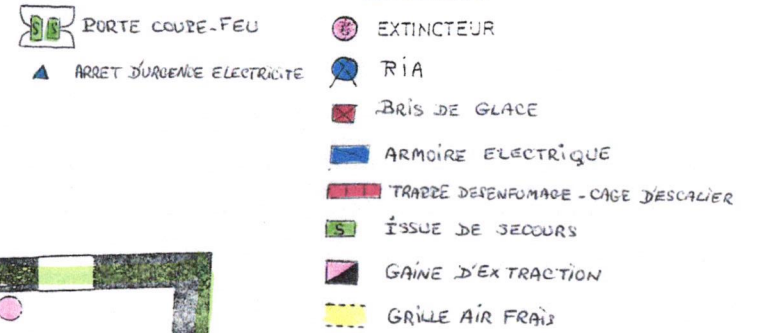 S S PORTE COUPE-FEU
ARRET D'URGENCE ELECTRICITE
EXTINCTEUR
RiA
BRiS DE GLACE
ARMOIRE ELECTRiQUE
TRAPPE DESENFUMAGE - CAGE D'ESCALIER
S ISSUE DE SECOURS
GAiNE D'EXTRACTION
GRiLLE AiR FRAiS